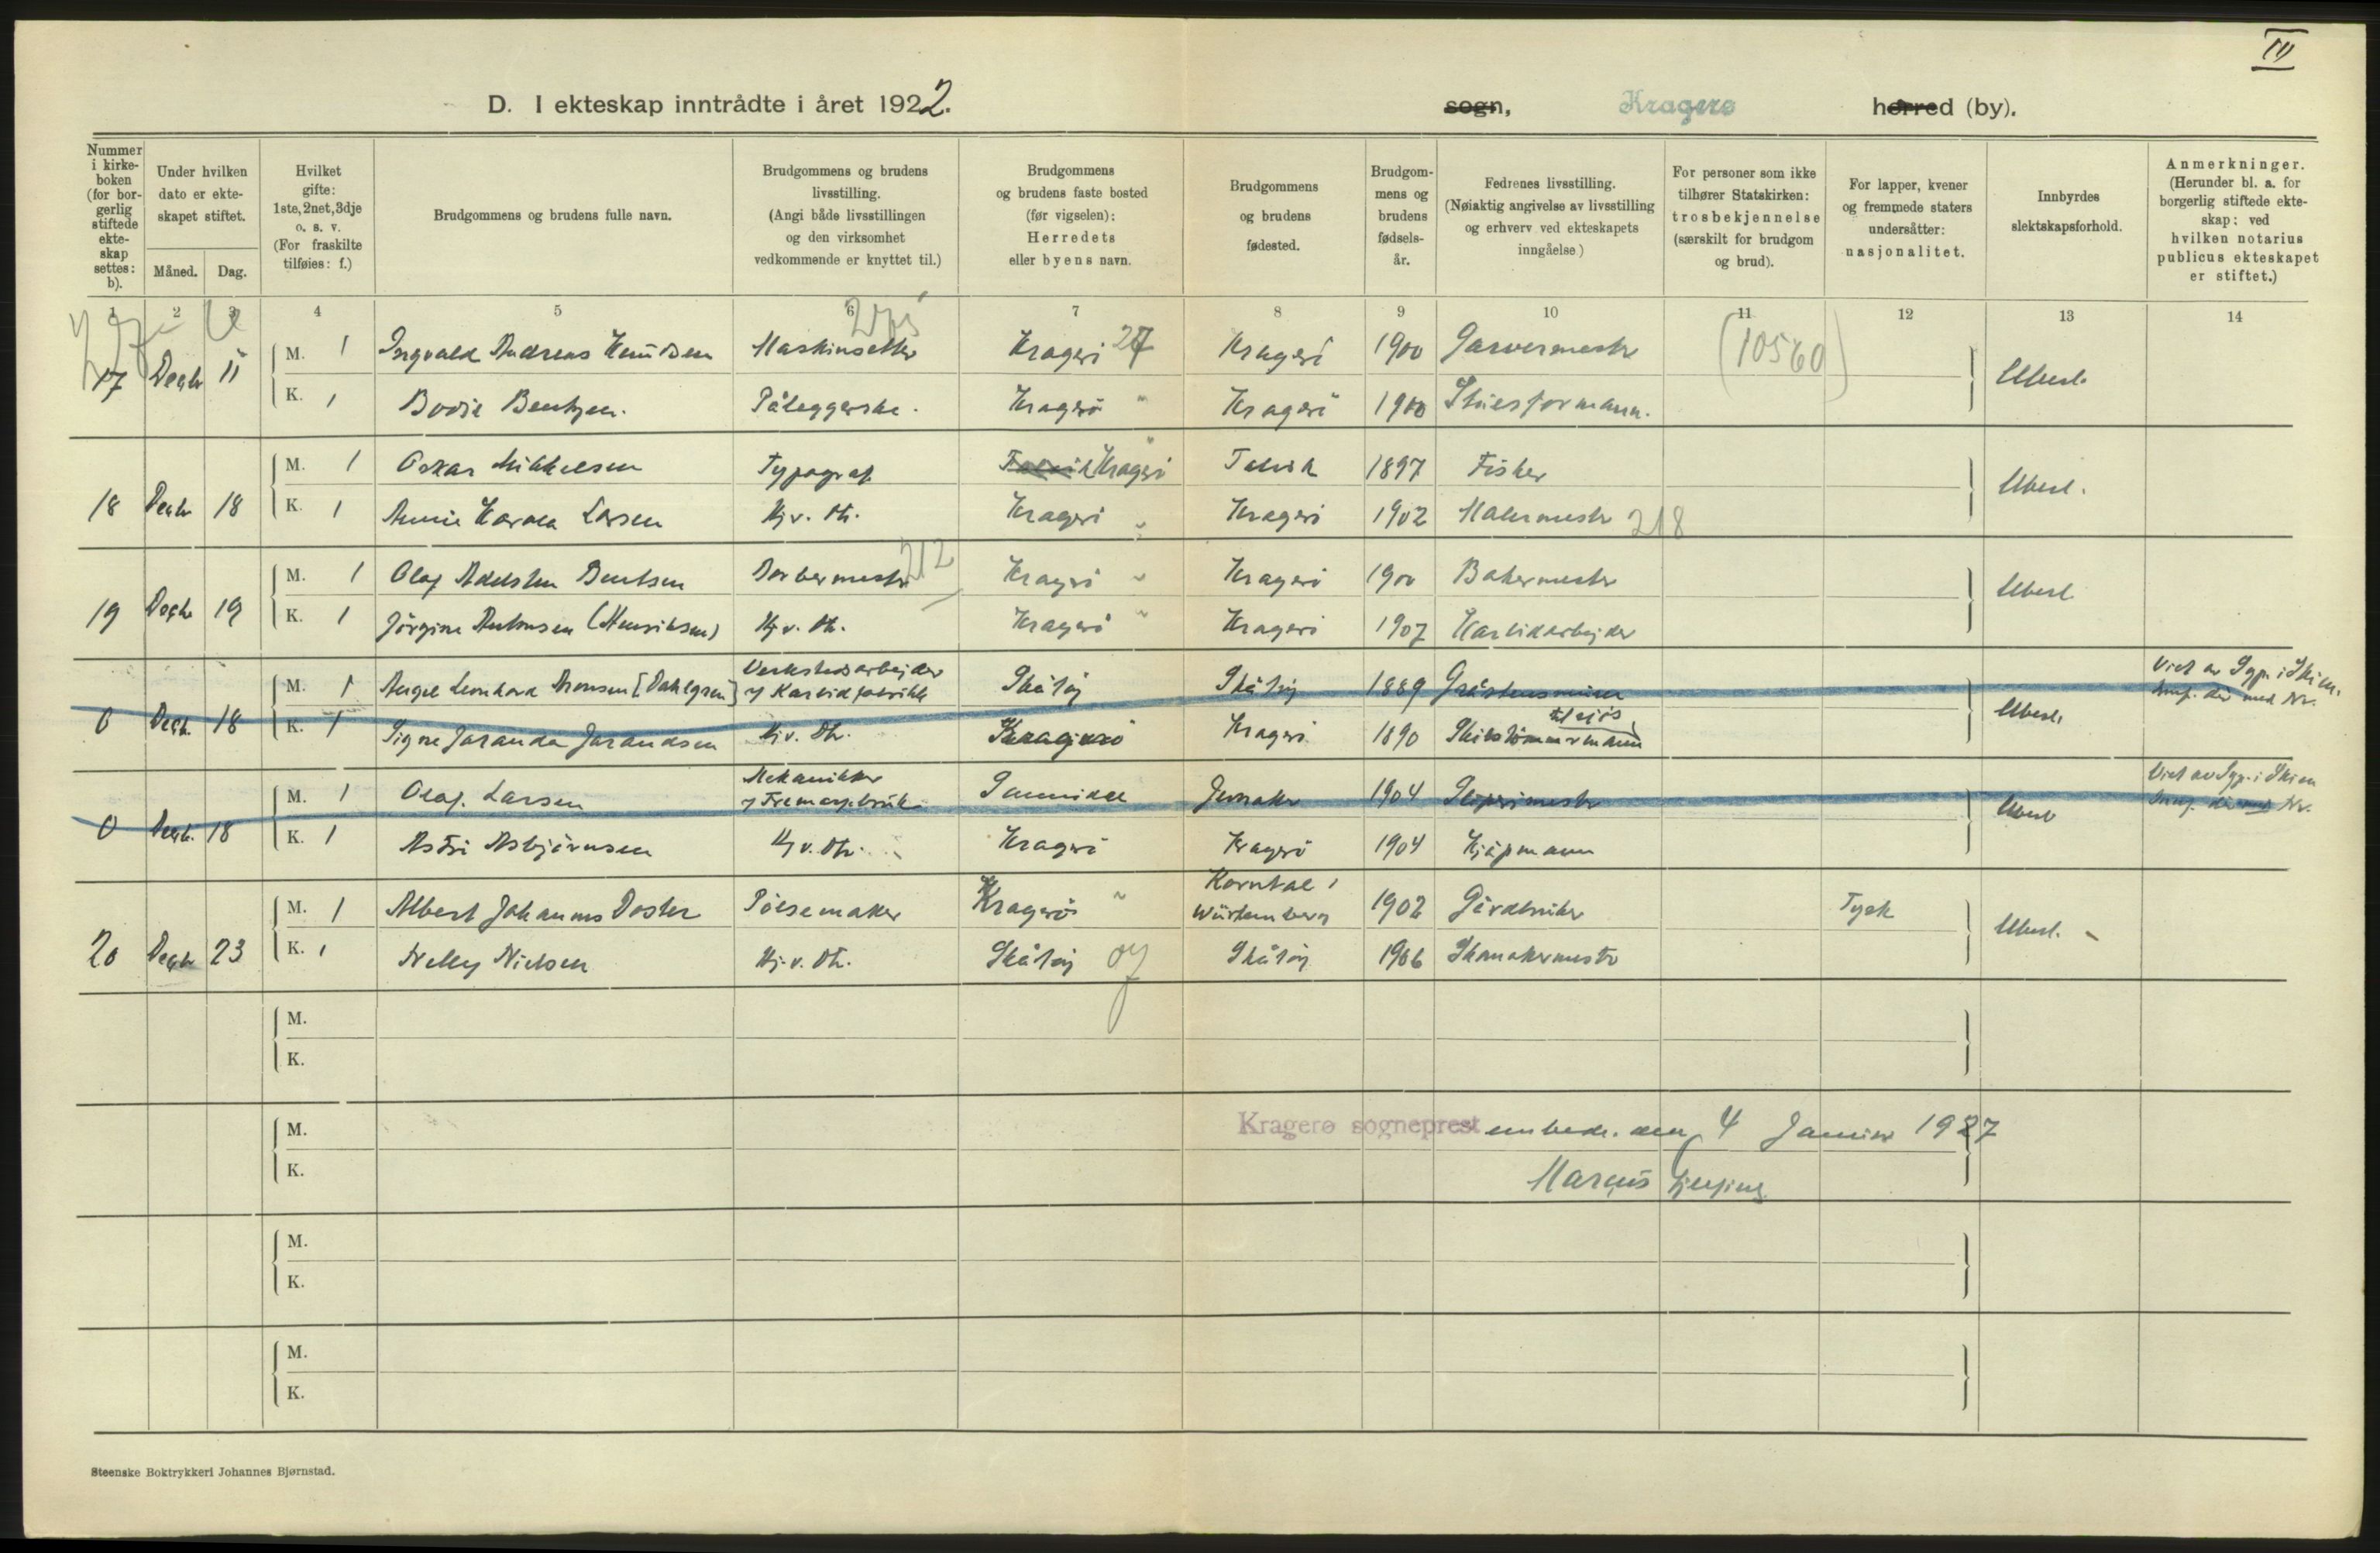 IV
D. I ekteskap inntrådte i året 1922.
sogn, Kragerø herred (by).
Nummer i kirke-boken (for bor-gerlig stiftede ekte-skap settes: b).
Under hvilken dato er ekte-skapet stiftet.
Måned. Dag.
Hvilket gifte: 1ste, 2net, 3dje o. s. v. (For fraskilte tilføies: f.)
Brudgommens og brudens fulle navn.
Brudgommens og brudens livsstilling. (Angi både livsstillingen og den virksomhet vedkommende er knyttet til.)
Brudgommens og brudens faste bosted (før vigselen): Herredets eller byens navn.
Brudgommens og brudens fødested.
Brudgom-mens og brudens fødsels-år.
Fedrenes livsstilling. (Nøiaktig angivelse av livsstilling og erhverv ved ekteskapets inngåelse)
For personer som ikke tilhører Statskirken: trosbekjennelse (særskilt for brudgom og brud).
For lapper, kvener og fremmede staters undersåtter: nasjonalitet.
Innbyrdes slektskapsforhold.
Anmerkninger. (Herunder bl. a. for borgerlig stiftede ekte-skap: ved hvilken notarius publicus ekteskapet er stiftet.)
1 2 3 4 5 6 7 8 9 10 11 12 13 14
17 Decbr 11 M. 1 Ingvald Andreas Knudsen Maskinsetter Kragerö 27 Kragerö 1900 Garvermestr (10560) Ubesl.
K. 1 Bodil Bentzen. Påleggerske. Kragerö " Kragerö 1900 Stuesformann.
18 Decbr 18 M. 1 Oskar Mikkelsen Typograf Talvik Kragerö Talvik 1897 Fisker Ubesl.
K. 1 Annie Larsen Hj. v. Dtr. Kragerö " Kragerö 1902 Malermestr 218
19 Decbr 19 M. 1 Olaf Adelsten Bentsen Barbermestr 212 Kragerö " Kragerö 1900 Bakermestr Ubesl.
K. 1 Jörgine Antonsen (Henriksen) Hj. v. Dtr. Kragerö " Kragerö 1907 Karbidarbejder
0 Decbr. 18 M. 1 Aagel Leonhard Aronsen [Dahlgren] Verkstedsarbejder v/ Karbidfabrikk Skåtöy Skåtöy 1889 Ubesl. Viet av Sgpr. i Skien. Innf. der med Nr.
K. 1 Signe Jaranda Jarandsen Hj. v. Dtr. Kragerö Kragerö 1890 Skibstömmermann til sjös
0 Decbr. 18 M. 1 Olaf. Larsen Mekaniker Sannidal Jevnaker 1904 Sliperimestr Ubesl. Viet av Sgpr. i Skien Innf. der med Nr.
K. 1 Astri Asbjörnsen Hj. v. Dtr. Kragerö Kragerö 1904 Kjöpmann
20 Decbr 23 M. 1 Albert Johannes Doster Pölsemaker Kragerö " Korntal i Würtemberg 1902 Gårdbruker Tysk Ubesl.
K. 1 Nelly Nielsen Hj. v. Dtr. Skåtöy 07 Skåtöy 1906 Skomakermestr
M.
K.
M.
K.
Kragerø sogneprest embede. den 4 Januar 1927
Marcus
M.
K.
M.
K.
Steenske Boktrykkeri Johannes Bjørnstad.